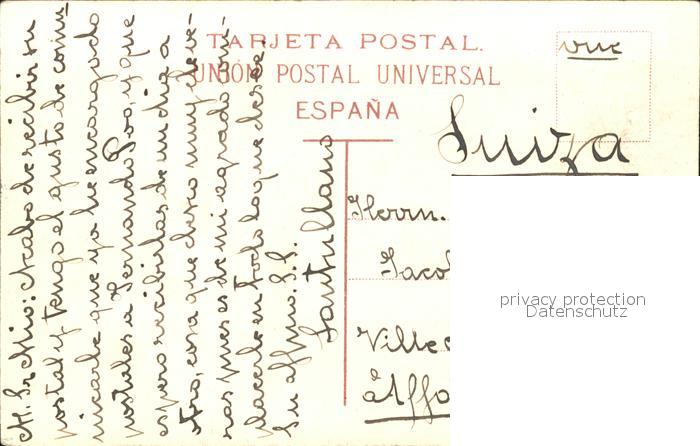 TARJETA POSTAL.
UNIÓN POSTAL UNIVERSAL
ESPAÑA
vue
Suiza
Herrn.
Jacob
Ville
à Affo
privacy protection
Datenschutz
M. Sr Mio: Acabo de recibir su
postal y tengo el gusto de comu-
nicarle que ya he encargado
postales a Fernando Poo, y que
espero recibirlas de un dia a
otro, cosa que deseo muy de ve-
ras pues es de mi agrado com-
placerle en todo lo que desee.
Su affmo. S.S.
Santullano